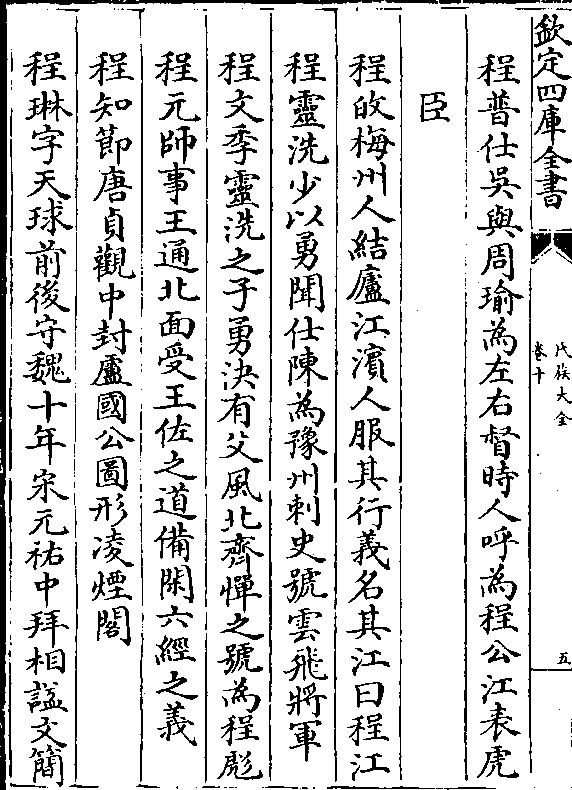 欽定四庫全書
氏族大全
卷十
五
程普仕吳與周瑜為左右督時人呼為程公江表虎
臣
程旼梅州人結廬江濱人服其行義名其江曰程江
程靈洗少以勇聞仕陳為豫州刺史號雲飛將軍
程文季靈洗之子勇決有父風北齊憚之號為程彪
程元師事王通北面受王佐之道備閑六經之義
程知節唐貞觀中封盧國公圖形凌煙閣
程琳字天球前後守魏十年宋元祐中拜相謚文簡